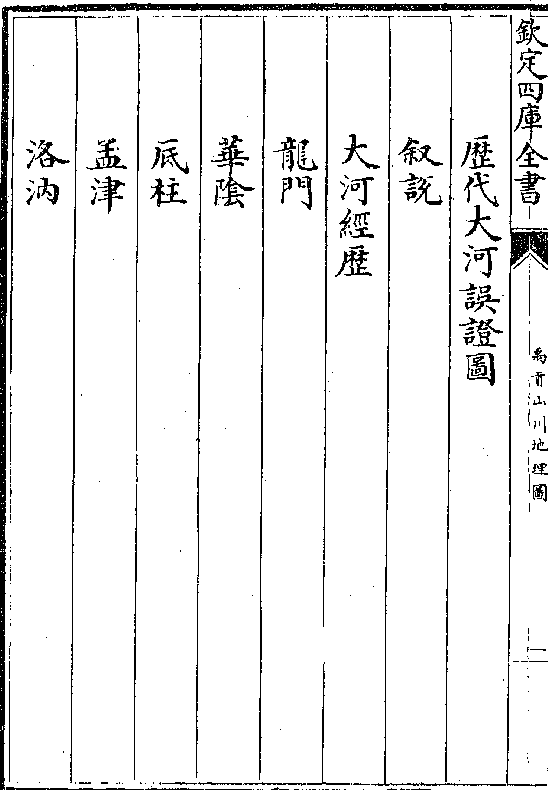 欽定四庫全書
禹貢山川地理圖
一
歴代大河誤證圖
叙説
大河經歴
龍門
華隂
厎柱
孟津
洛汭